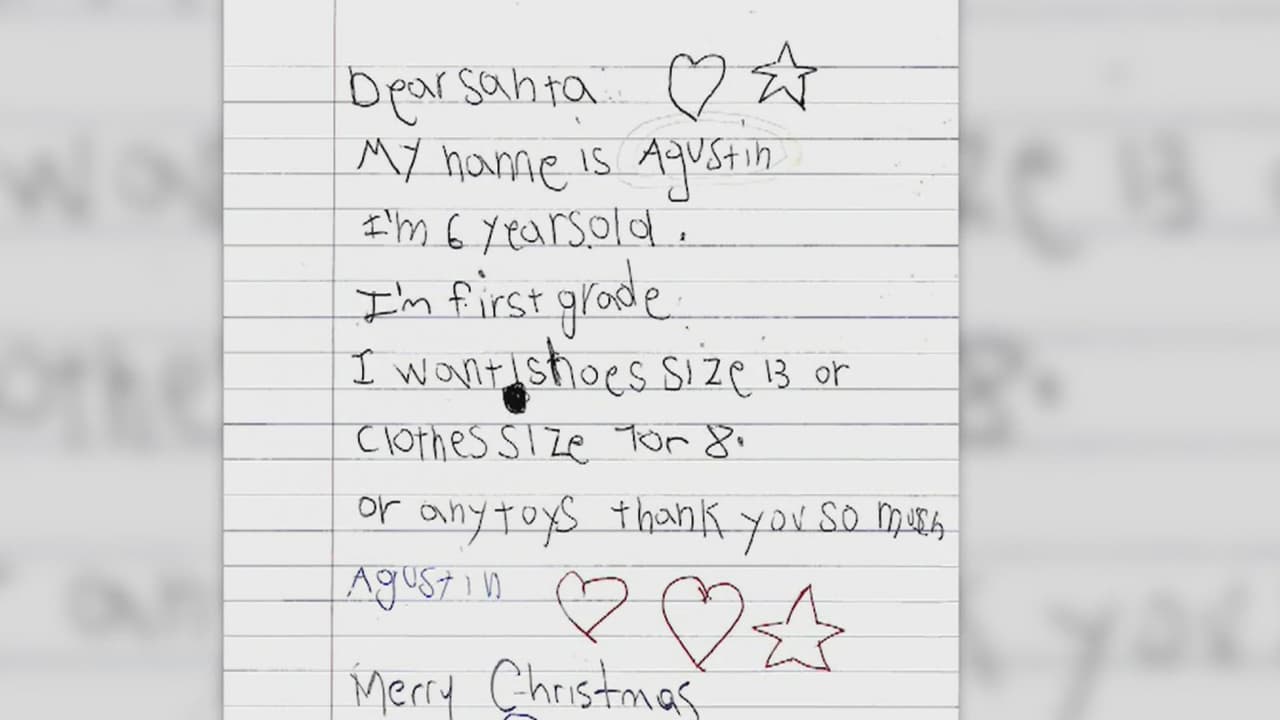 Dear Santa
My name is Agustin
I'm 6 years old.
I'm first grade
I want shoes size 13 or
clothes size 7 or 8.
or any toys thank you so much
Agustin
Merry Christmas